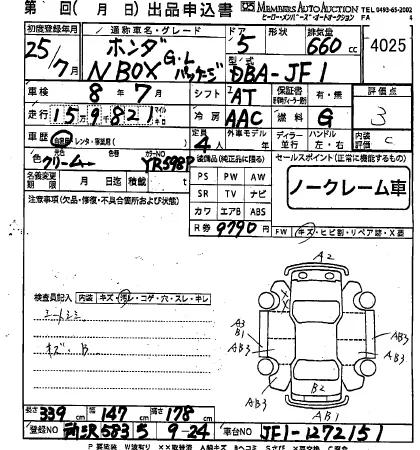 第 回( 月 日)出品申込書 MEMBERS AUTO AUCTION TEL 0493-65-2002
ヒーロー・メンバーズ・オートオークション FA
初度登録年月 通称車名・グレード ドア 形状 排気量
25/7月 ホンダ NBOX G・L パッケージ 5 660cc 4025
DBA-JF1
車検 8年7月 シフト AT 保証書 有・無 評価点
走行 159821 冷房 AAC 燃料 G 3
車歴 自家用 レンタ・事業用( ) 定員 4人 外車モデル ディーラー 並行 ハンドル 左・右 内装 C
色 クリーム 色番 カラーNO YR598P
装備品(純正品に限る) セールスポイント(正常に機能するもの)
名義変更期限 月 日迄 積載 t
PS PW AW
SR TV ナビ
カワ エアB ABS
R券 9790
ノークレーム車
注意事項(欠品・修復・不具合箇所および状態)
FW キズ・ヒビ割・リペア跡・X 要
検査員記入 内装 キズ・汚レ・コゲ・穴・スレ・キレ
シートシミ
キズ・B
A2
A3
B1
AB3
AB3
AB3
B2
AB1
長さ 339cm 幅 147cm 高さ 178cm
登録NO 583 5 9-24 車台NO JF1-1272151